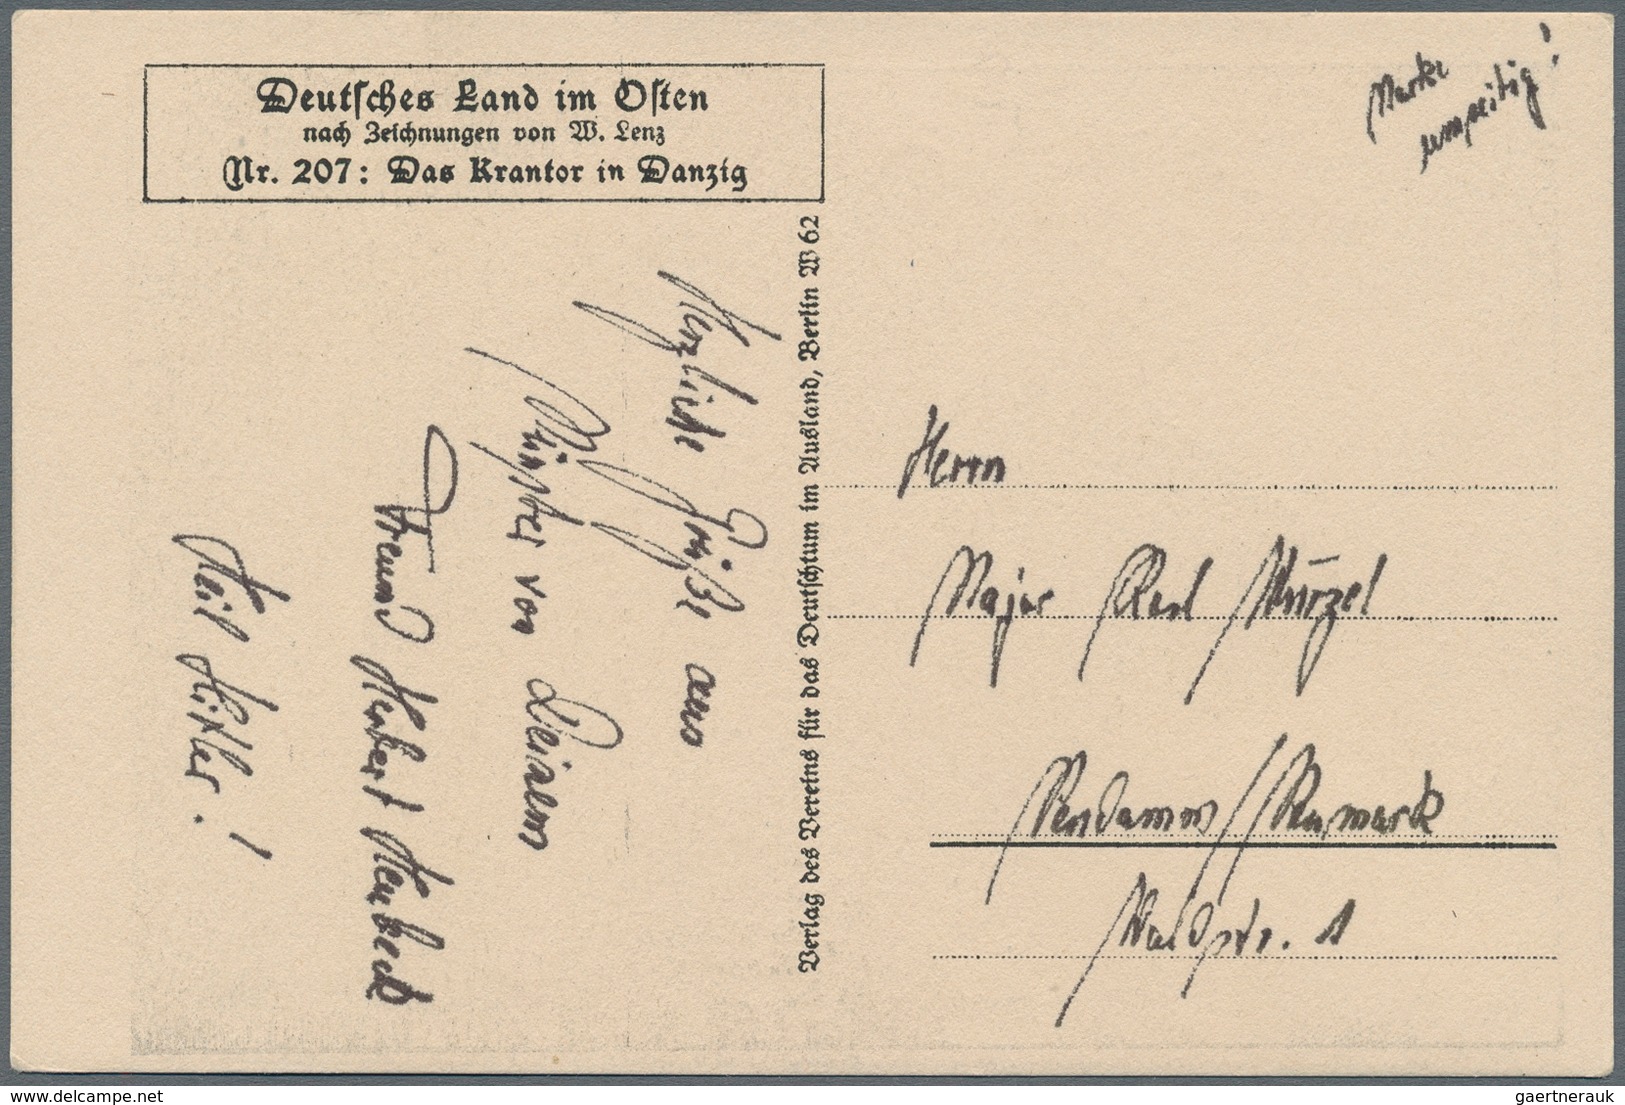 Deutsches Land im Osten
nach Zeichnungen von W. Lenz
Nr. 207: Das Krantor in Danzig
Marke
umseitig!
Verlag des Vereins für das Deutschtum im Ausland, Berlin W 62
Herzliche Grüße aus
Münster von Deinem
Freund Herbert
Heil Hitler!
Herrn
Major Karl Wurzel
Neudamm / Neumark
Waldstr. 1
delcampe.net
gaertnerauk